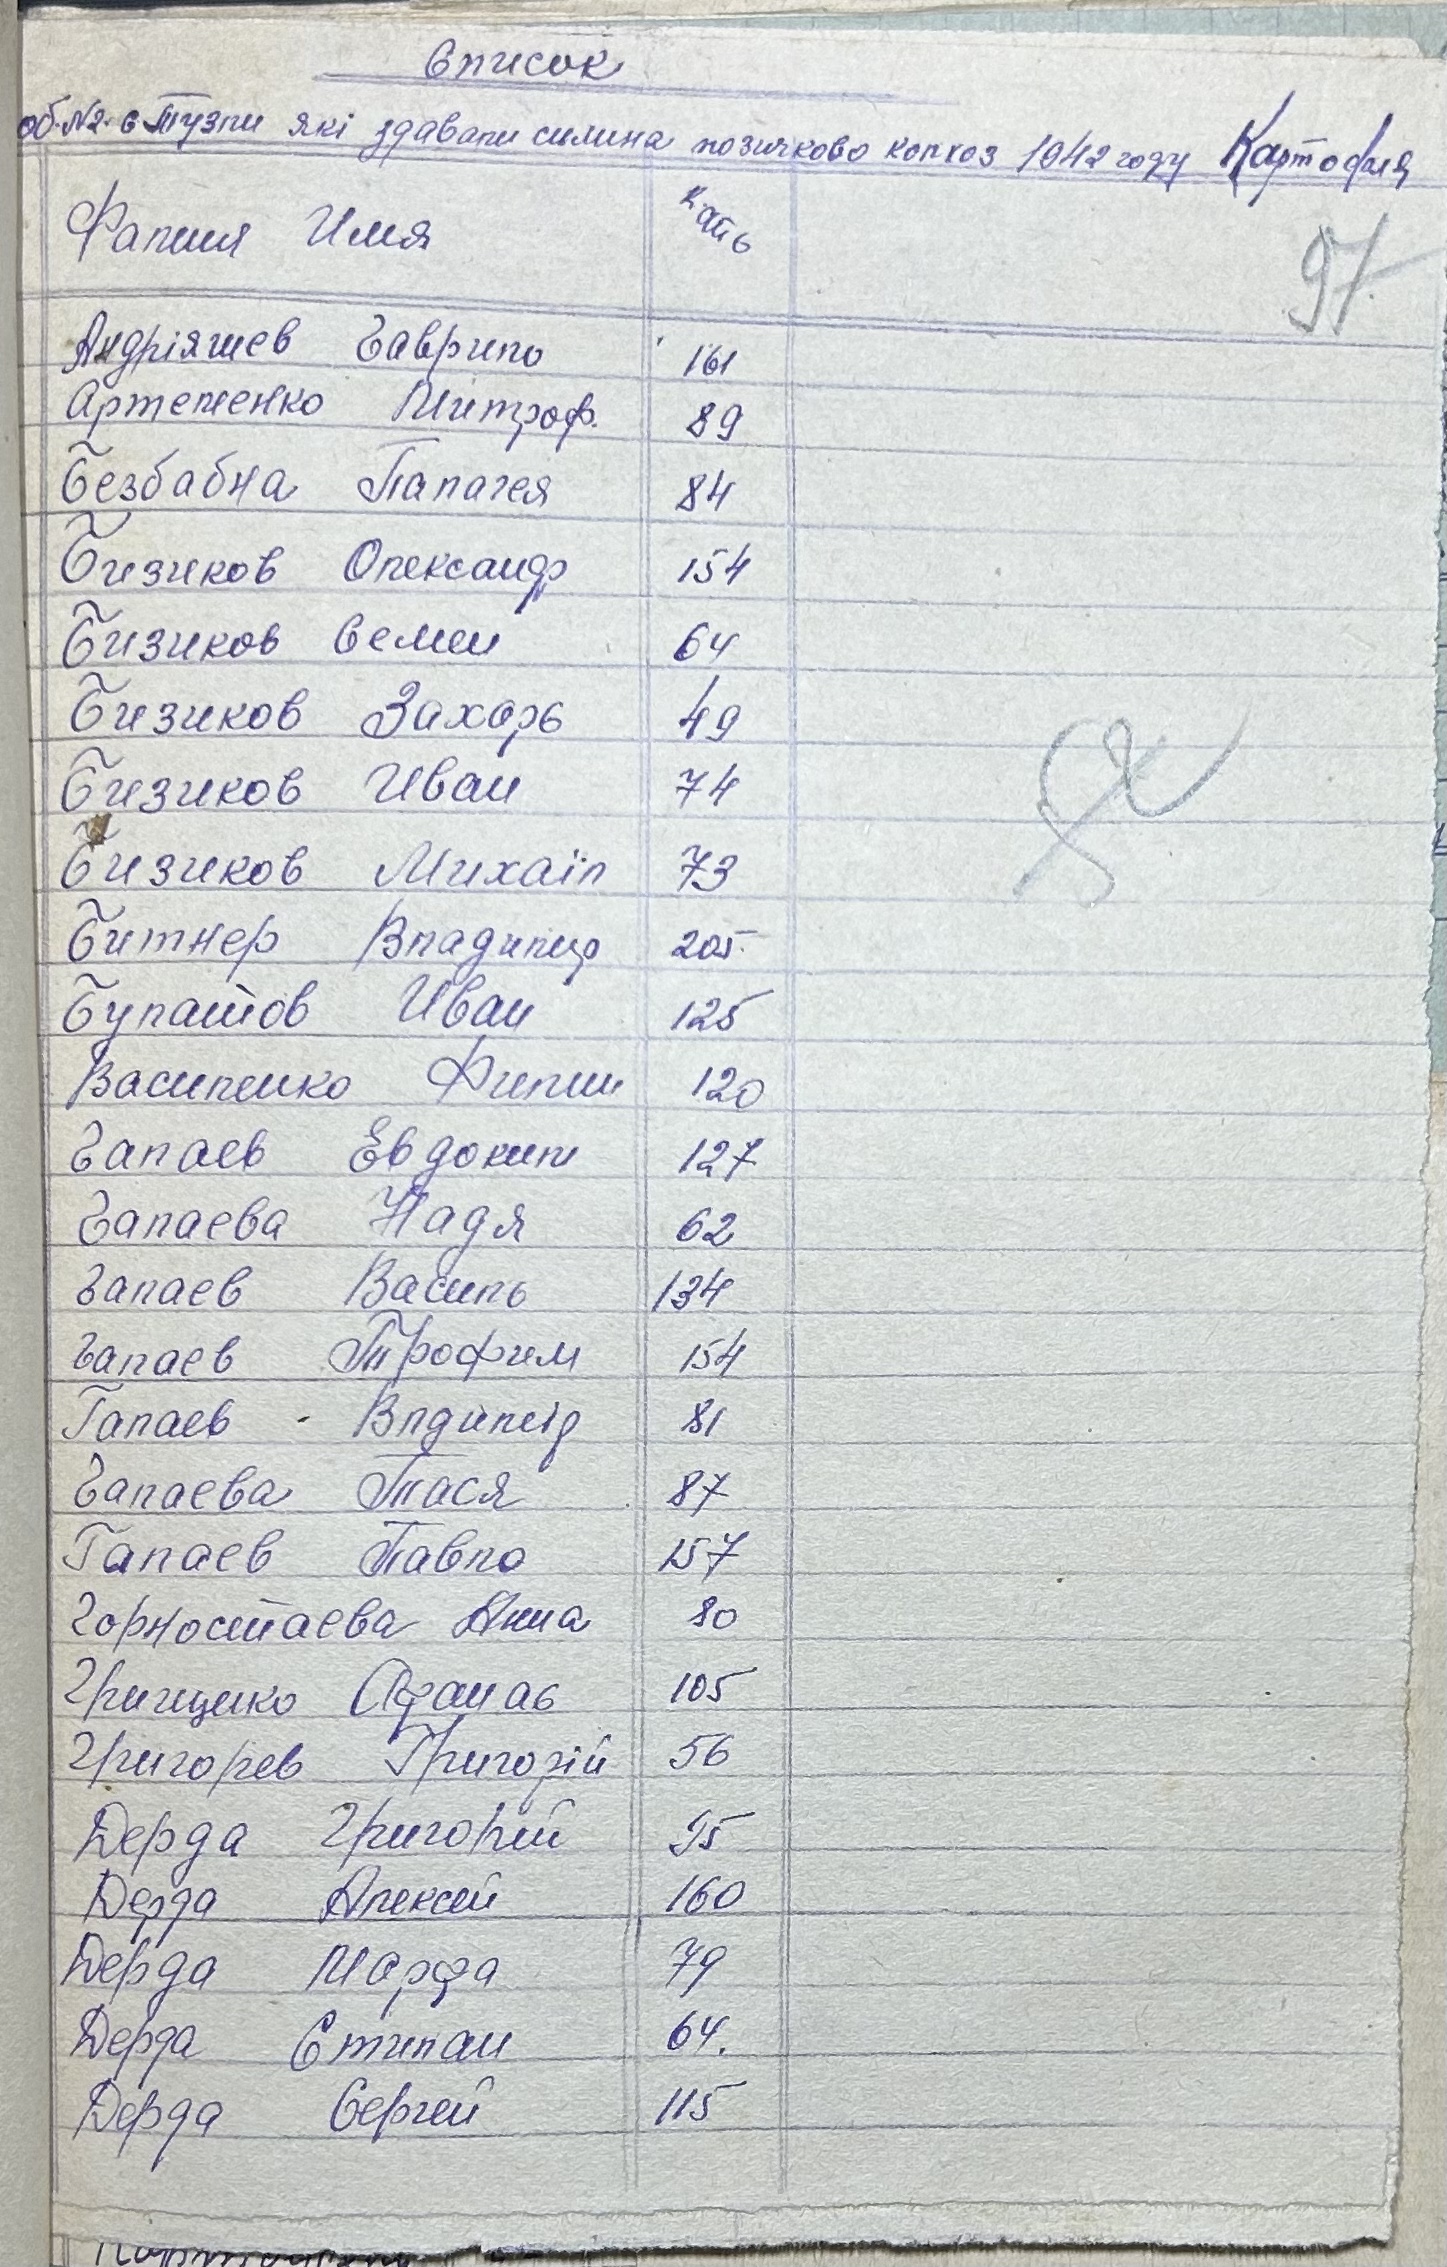 Список
об. №2. с Тузли які здавали силина позичково колхоз 1942 году Картофля
Фамилия Имя Кать
97
Андріяшев Гаврило 161
Артеменко Митроф. 89
Безбабна Палагея 84
Бизиков Олександр 154
Бизиков Семен 64
Бизиков Захарь 49
Бизиков Иван 74
Бизиков Михаіл 73
Битнер Владимир 205
Булатов Иван 125
Василенко Филип 120
Галаев Евдоким 127
Галаева Надя 62
Галаев Василь 134
Галаев Трофим 154
Галаев Влдимір 81
Галаева Тася 87
Галаев Павло 157
Горностаева Анна 80
Грищнко Афанас 105
Григорев Григорій 56
Дерда Григорий 95
Дерда Алексей 160
Дерда Марфа 79
Дерда Стипан 64.
Дерда Сергей 115